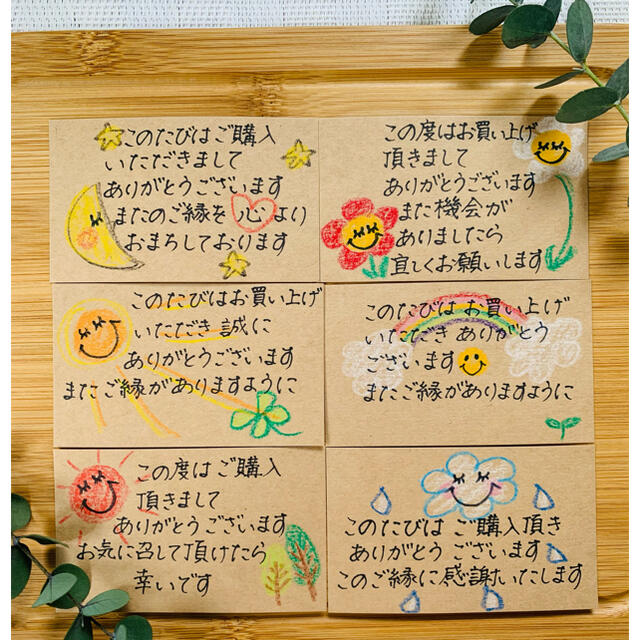 このたびはご購入
いただきまして
ありがとうございます
またのご縁を心より
おまちしております
この度はお買い上げ
頂きまして
ありがとうございます
また機会が
ありましたら
宜しくお願いします
このたびはお買い上げ
いただき 誠に
ありがとうございます
またご縁がありますように
このたびは お買い上げ
いただき ありがとう
ございます
またご縁がありますように
この度は ご購入
頂きまして
ありがとうございます
お気に召して頂けたら
幸いです
このたびは ご購入頂き
ありがとう ございます
このご縁に感謝いたします